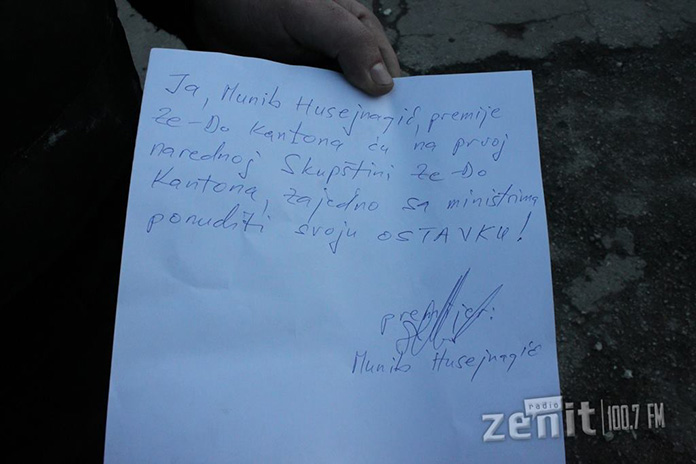 Ja, Munib Husejnagić, premije
Ze-Do Kantona ću na prvoj
narednoj Skupštini Ze-Do
Kantona, zajedno sa ministrima
ponuditi svoju OSTAVKU!
premijer:
Munib Husejnagić
radio
zenit 100.7 FM